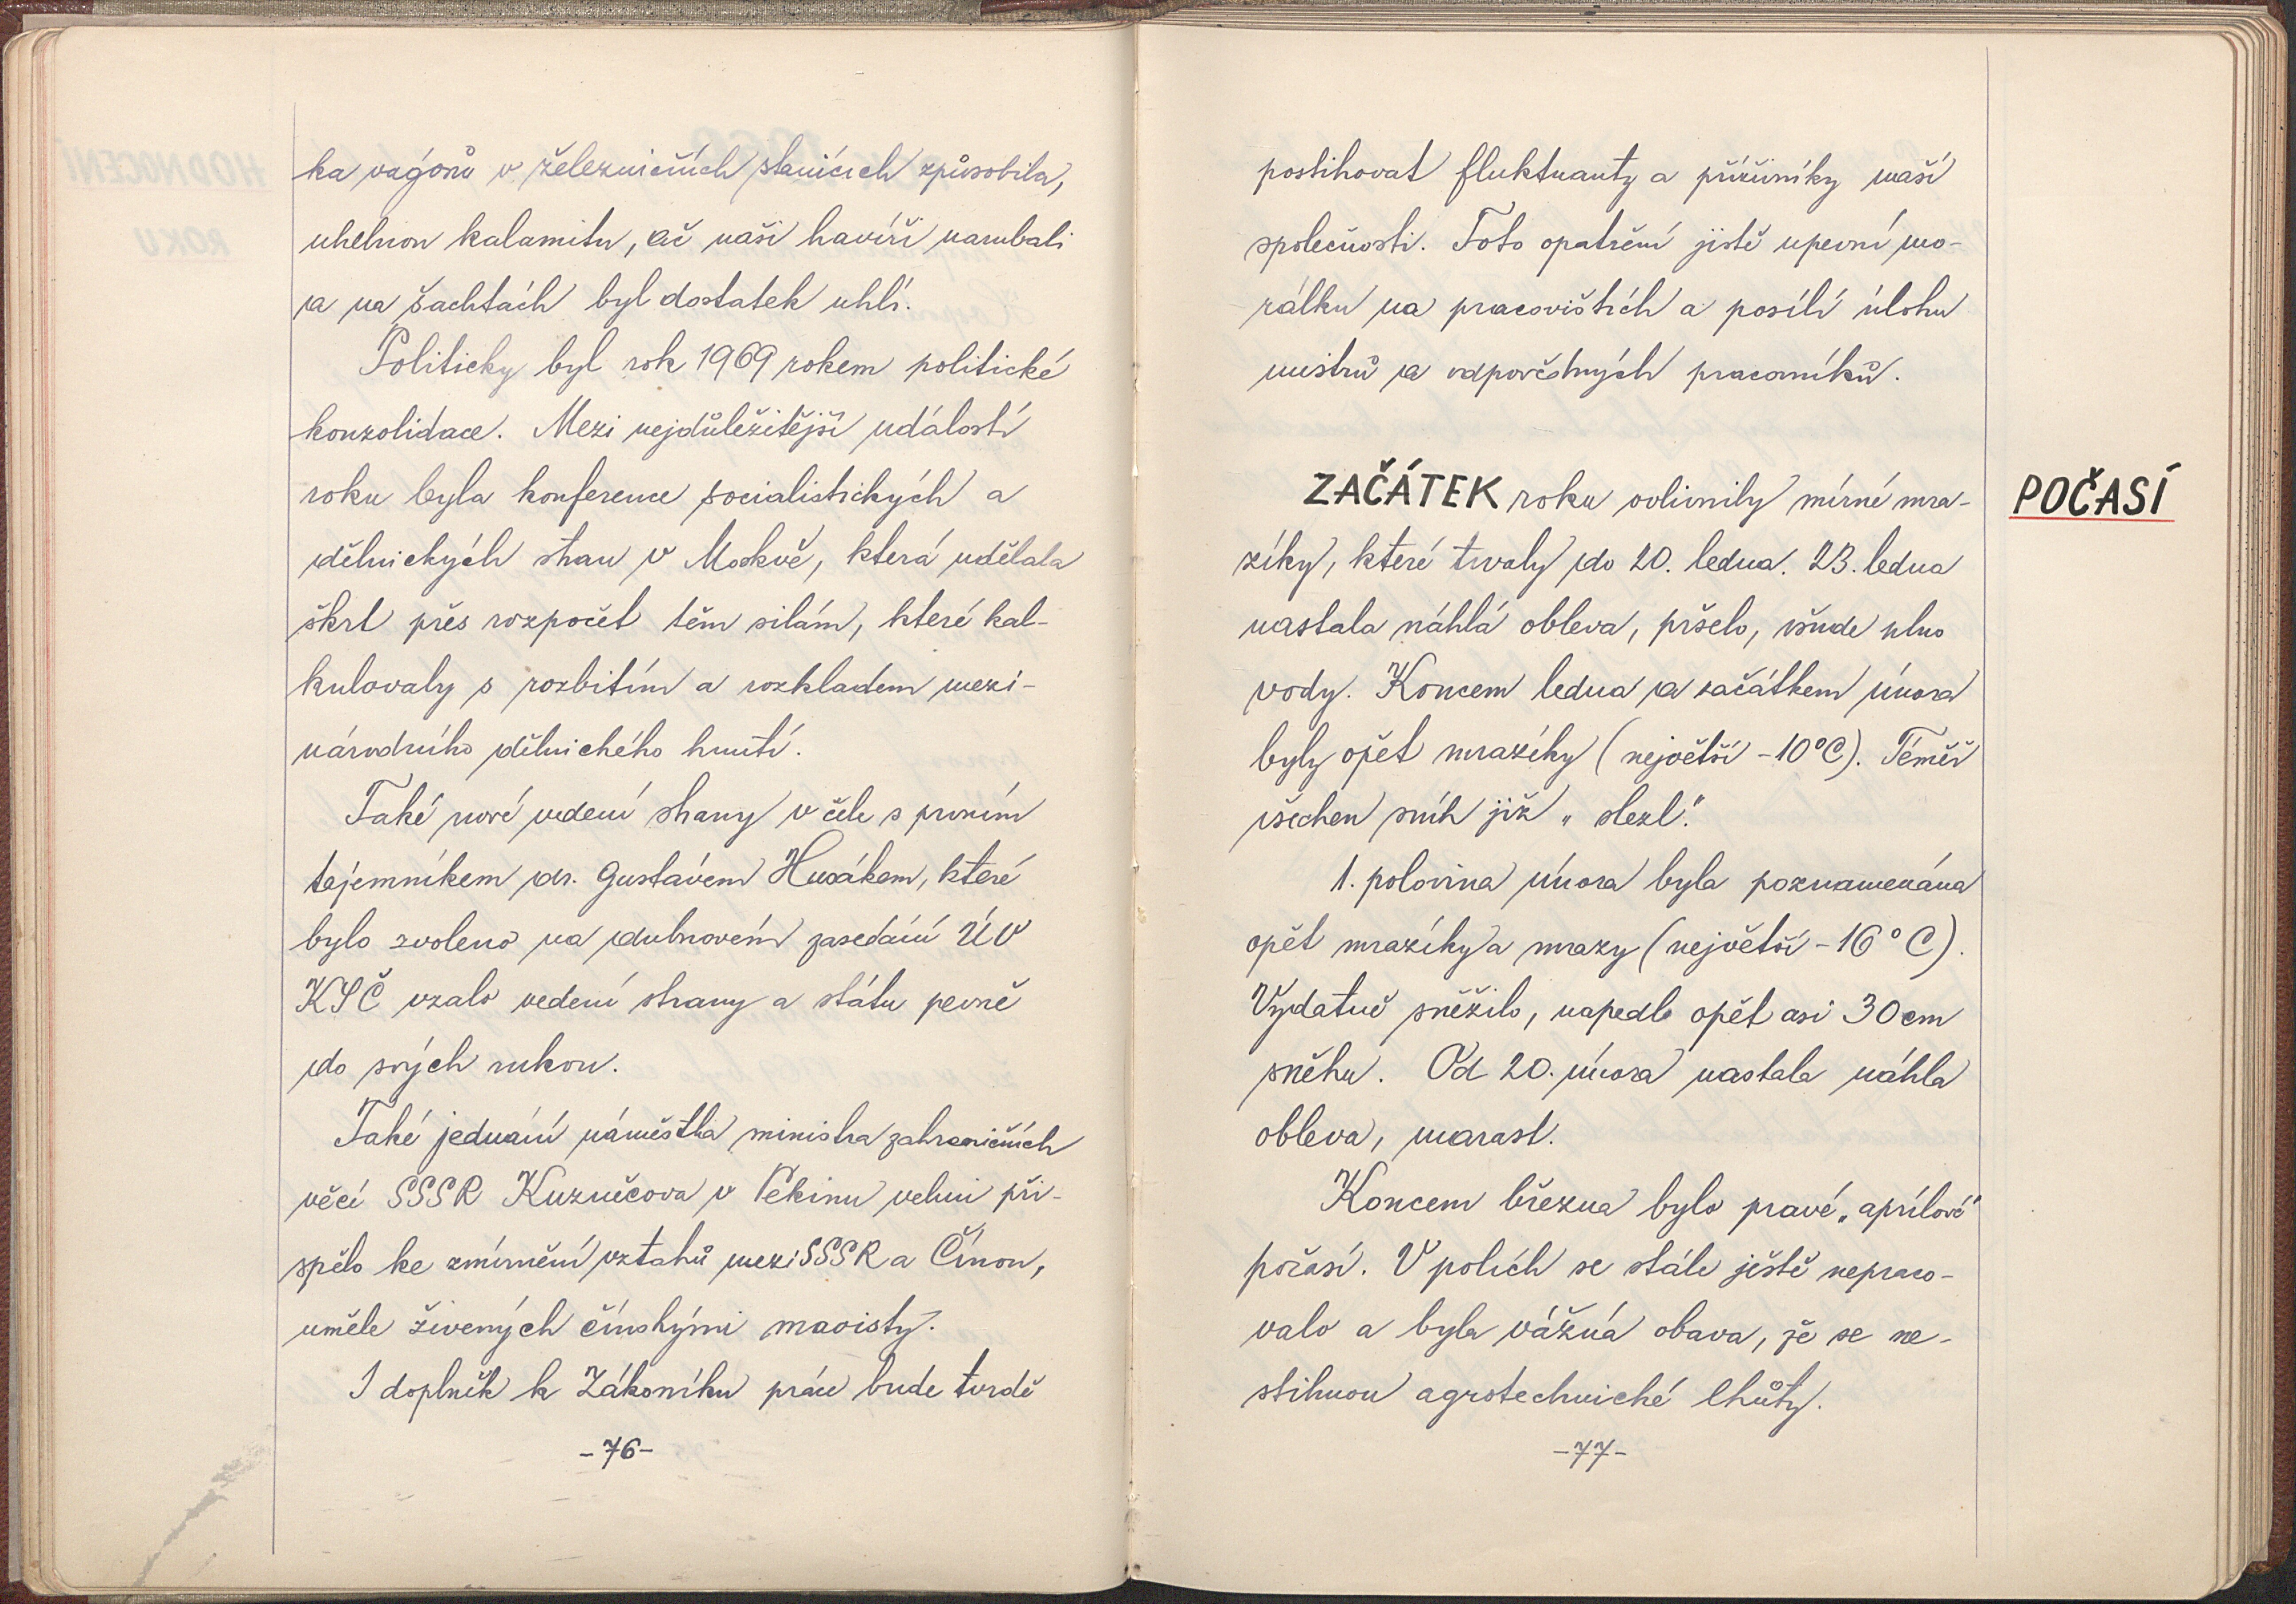 ka vagónů v železničních stanicích způsobila,
uhelnou kalamitu, ač naši havíři narubali
a na šachtách byl dostatek uhlí.
Politicky byl rok 1969 rokem politické
konzolidace. Mezi nejdůležitější události
roku byla konference socialistických a
dělnických stran v Moskvě, která udělala
škrt přes rozpočet těm silám, které kal-
kulovaly s rozbitím a rozkladem mezi-
národního dělnického hnutí.
Také nové vedení strany v čele s prvním
tajemníkem dr. Gustávem Husákem, které
bylo zvoleno na dubnovém zasedání ÚV
KSČ vzalo vedení strany a státu pevně
do svých rukou.
Také jednání náměstka ministra zahraničních
věcí SSSR Kuzněcova v Pekinu velmi při-
spělo ke zmírnění vztahů mezi SSSR a Čínou,
uměle živených čínskými maoisty.
I doplněk k Zákoníku práce bude tvrdě
-76-
postihovat fluktuanty a příživníky naší
společnosti. Toto opatření jistě upevní mo-
rálku na pracovištích a posílí úlohu
mistrů a odpovědných pracovníků.
POČASÍ
ZAČÁTEK roku ovlivnily mírné mra-
zíky, které trvaly do 20. ledna. 23. ledna
nastala náhlá obleva, pršelo, všude plno
vody. Koncem ledna a začátkem února
byly opět mrazíky (největší -10°C). Téměř
všechen sníh již „slezl".
1. polovina února byla poznamenána
opět mrazíky a mrazy (největší -16°C).
Vydatně sněžilo, napadlo opět asi 30 cm
sněhu. Od 20. února nastala náhla
obleva, marast.
Koncem března bylo pravé „aprílové"
počasí. V polích se stále ještě nepraco-
valo a byla vážná obava, že se ne-
stihnou agrotechnické lhůty.
-77-